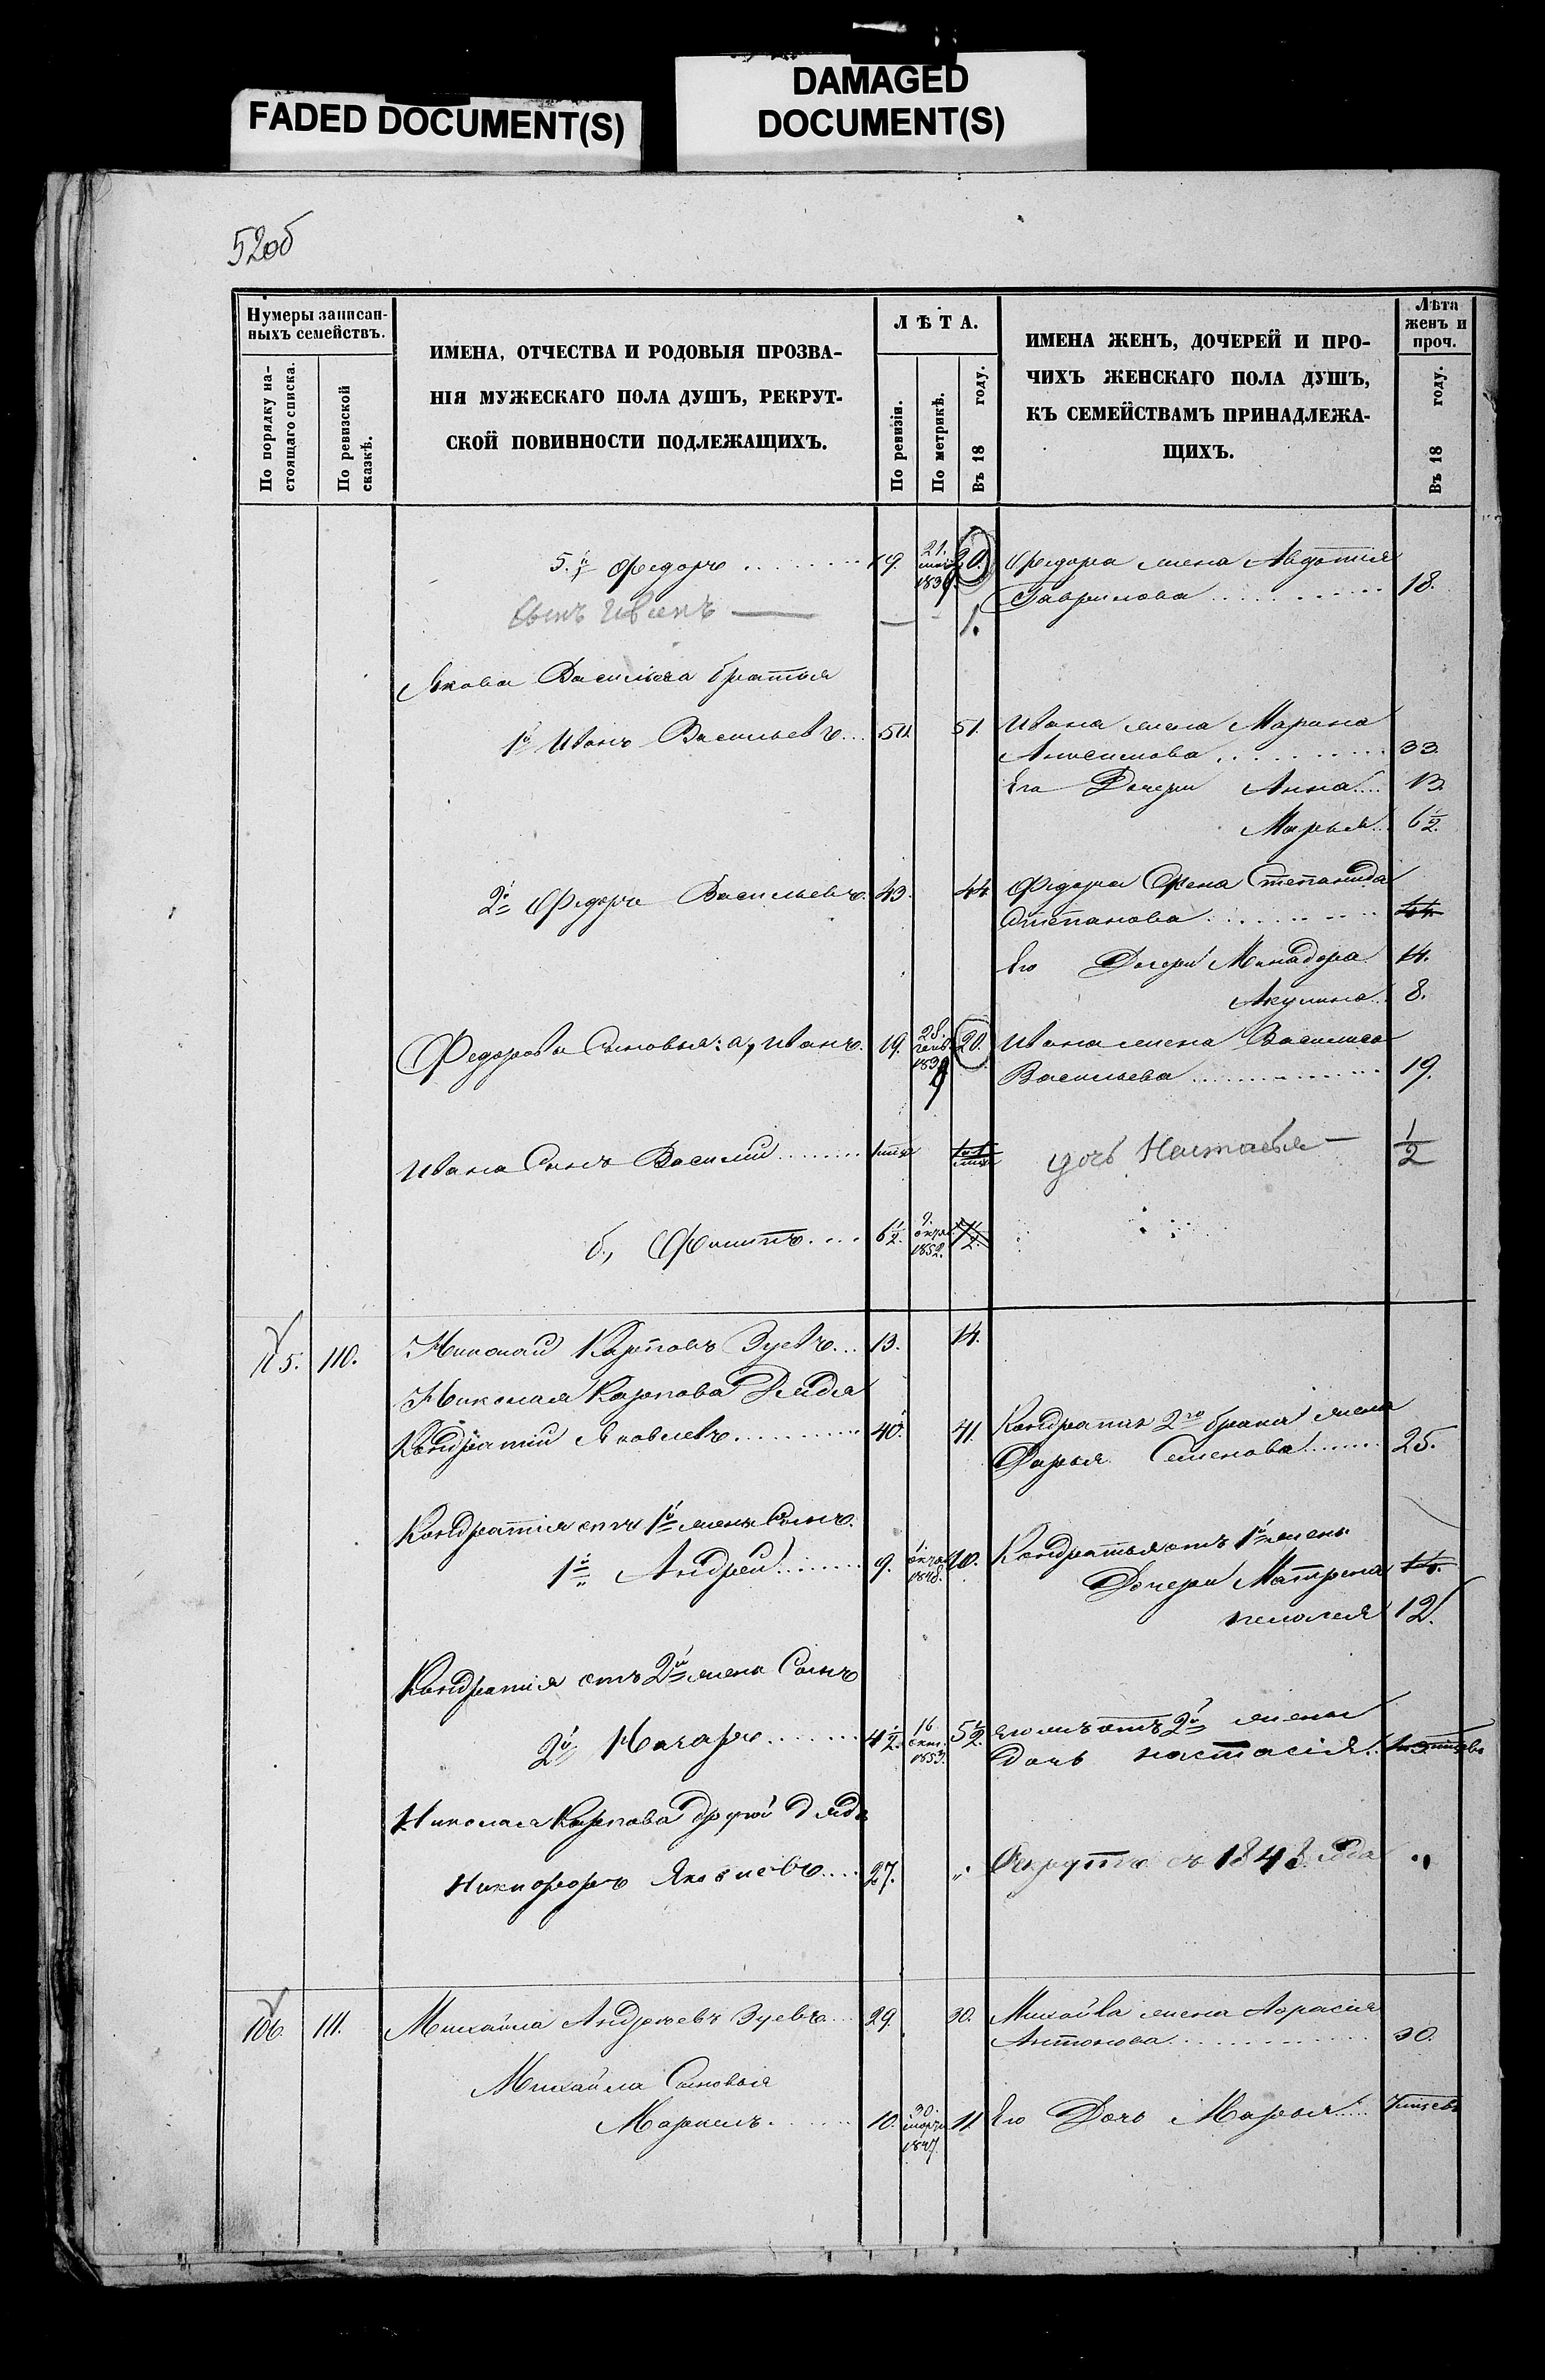 FADED DOCUMENT(S)
DAMAGED
DOCUMENT(S)
52об
Нумеры записан-
ныхъ семействъ.
По порядку на-
стоящаго списка.
По ревизской
сказкѣ.
ИМЕНА, ОТЧЕСТВА И РОДОВЫЯ ПРОЗВА-
НІЯ МУЖЕСКАГО ПОЛА ДУШЪ, РЕКРУТ-
СКОЙ ПОВИННОСТИ ПОДЛЕЖАЩИХЪ.
ЛѢТА.
По ревизіи.
По метрикѣ.
Въ 18 году.
ИМЕНА ЖЕНЪ, ДОЧЕРЕЙ И ПРО-
ЧИХЪ ЖЕНСКАГО ПОЛА ДУШЪ,
КЪ СЕМЕЙСТВАМЪ ПРИНАДЛЕЖА-
ЩИХЪ.
Лѣта
женъ и
проч.
Въ 18 году.
5.й Федоръ 19. 21. 1839 20. Федора жена Авдотья
Гаврилова 18.
сынъ — 1.
Якова Васильева братья
1й Иванъ Васильевъ 50 51. Ивана жена Марина
Анисимова 33.
Его Дочери Анна 13.
Марья 6½.
2й Федоръ Васильевъ 43. 44 Федора Жена Степанида
Степанова 44.
Его Дочери Минадора 14.
Акулина 8.
Федорова Сыновья: а, Иванъ. 19. 28. 1839 20. Ивана жена Василиса
Васильева 19.
Ивана Сынъ Василий дочь Настасья — ½
б, Филипъ 6½. 9. окт. 1852. 7½.
115. 110. Николай Карповъ Зуевъ 13. 14.
Николая Карпова Дядя
Кондратий Яковлевъ 40. 41. Кондратия 2го брака жена
Дарья Семенова 25.
Кондратия отъ 1й жены Сынъ.
1й Андрей 9. 1. 1848. 10. Кондратья отъ 1й жены
Дочери Матрена 14.
пелагея 12.
Кондратия отъ 2й жены Сынъ
2й Макаръ 4½. 16 окт. 1853. 5½. отъ 2й жены
дочь настасія
Николая Карпова другой дядя
Никифоръ Яковлевъ 27. Рекрутъ съ 1848 года
106. 111. Михайла Андреевъ Зуевъ 29. 30. Михайла жена Афрасия
Антонова 30.
Михайла Сыновья
Маркелъ 10. 30. марта 1847. 11. Его Дочь Марья